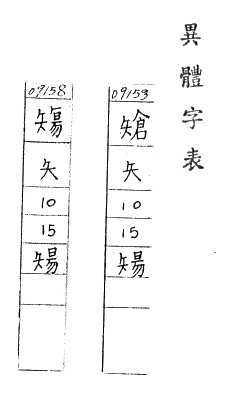 異體字表
09153
矢
10
15
09158
矢
10
15